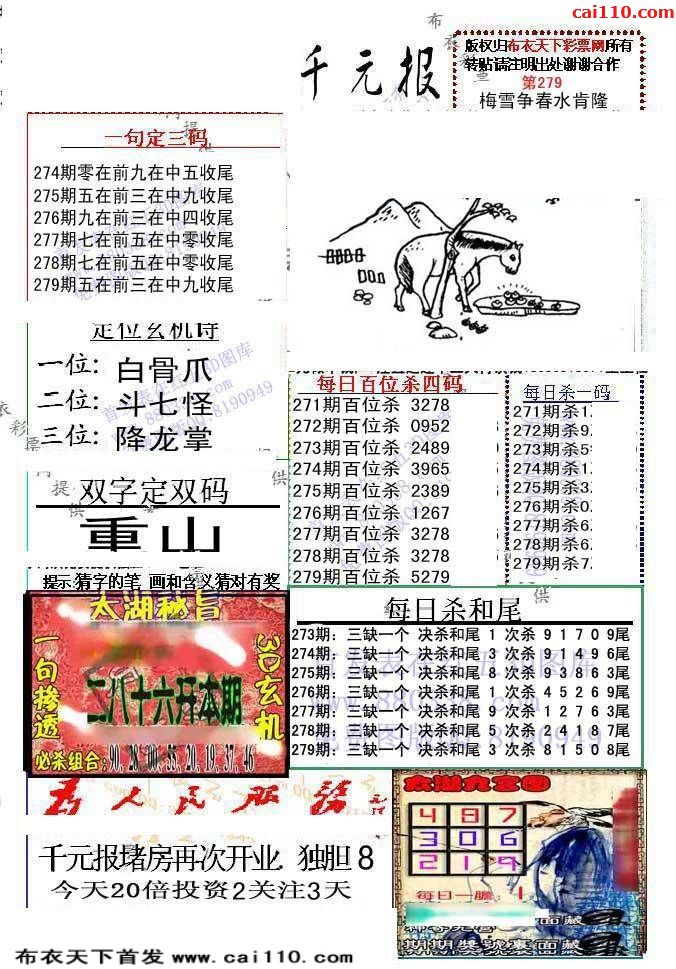 cai110.com
千元报
版权归布衣天下彩票网所有
转贴请注明出处谢谢合作
第279
梅雪争春水肯隆
一句定三码
274期零在前九在中五收尾
275期五在前三在中九收尾
276期九在前三在中四收尾
277期七在前五在中零收尾
278期七在前五在中零收尾
279期五在前三在中九收尾
定位玄机诗
一位: 白骨爪
二位: 斗七怪
三位: 降龙掌
双字定双码
重山
提示:猜字的笔 画和含义猜对有奖
每日百位杀四码
271期百位杀 3278
272期百位杀 0952
273期百位杀 2489
274期百位杀 3965
275期百位杀 2389
276期百位杀 1267
277期百位杀 3278
278期百位杀 3278
279期百位杀 5279
每日杀一码
271期杀1
272期杀9
273期杀5
274期杀1
275期杀3
276期杀0
277期杀6
278期杀6
279期杀7
太湖秘旨
一句掺透
3D玄机
二八十六开本期
必杀组合: 90,28,00,55,20,19,37,46
每日杀和尾
273期: 三缺一个 决杀和尾 1 次杀 9 1 7 0 9尾
274期: 三缺一个 决杀和尾 3 次杀 9 1 4 9 6尾
275期: 三缺一个 决杀和尾 1 次杀 9 3 8 6 3尾
276期: 三缺一个 决杀和尾 1 次杀 4 5 2 6 9尾
277期: 三缺一个 决杀和尾 9 次杀 1 2 7 6 3尾
278期: 三缺一个 决杀和尾 5 次杀 0 4 1 8 7尾
279期: 三缺一个 决杀和尾 3 次杀 6 1 5 0 8尾
为人民服务
千元报堵房再次开业 独胆 8
今天20倍投资2关注3天
太湖九宫图
4 8 7
3 0 6
2 1 9
每日一胆: 1
期期奖号裏面藏
布衣天下首发 www.cai110.com